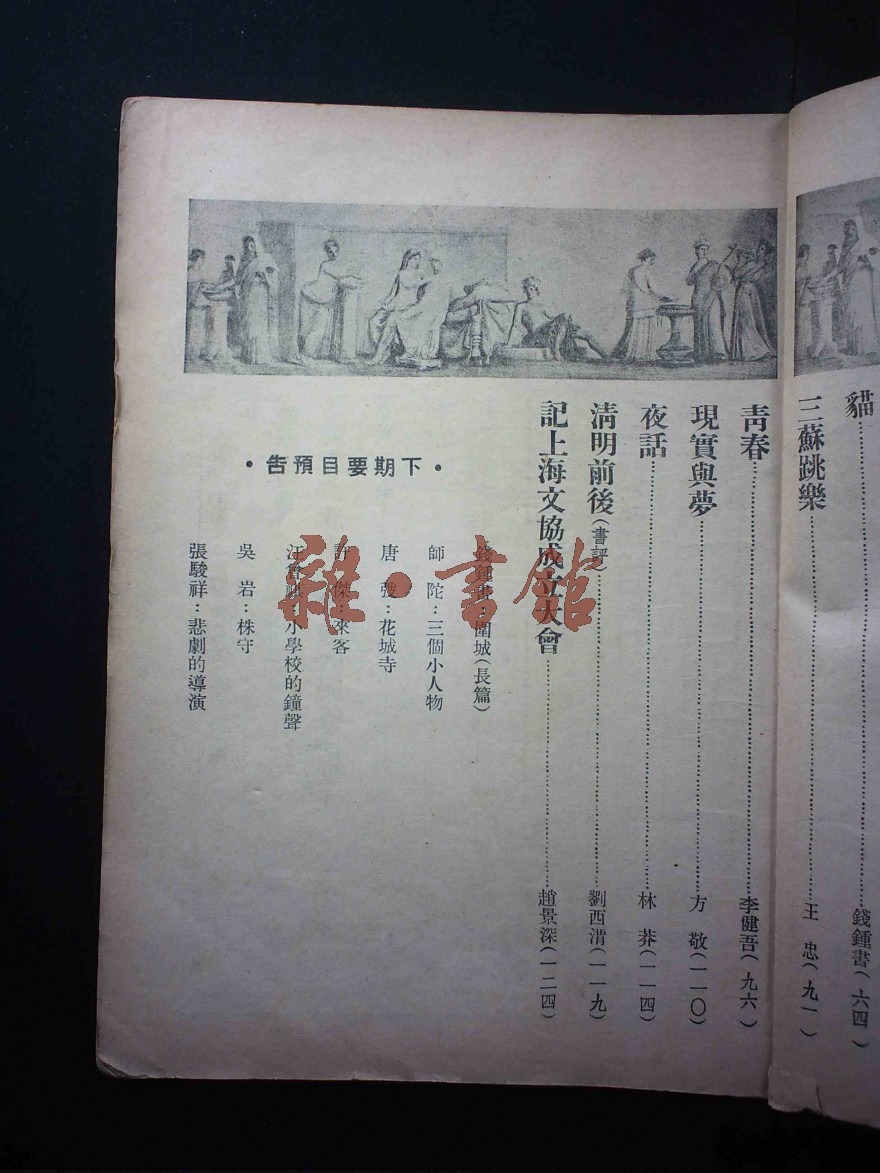 貓 錢鍾書(六四)
三蘇跳樂 王忠(九一)
靑春 李健吾(九六)
現實與夢 方敬(一一〇)
夜話 林莽(一一四)
淸明前後(書評) 劉西渭(一一九)
記上海文協成立大會 趙景深(一二四)
•下期要目預告•
錢鍾書:圍城(長篇)
師陀:三個小人物
唐弢:花城寺
許傑:來客
汪曾祺:小學校的鐘聲
吳岩:株守
張駿祥:悲劇的導演
雜•書館